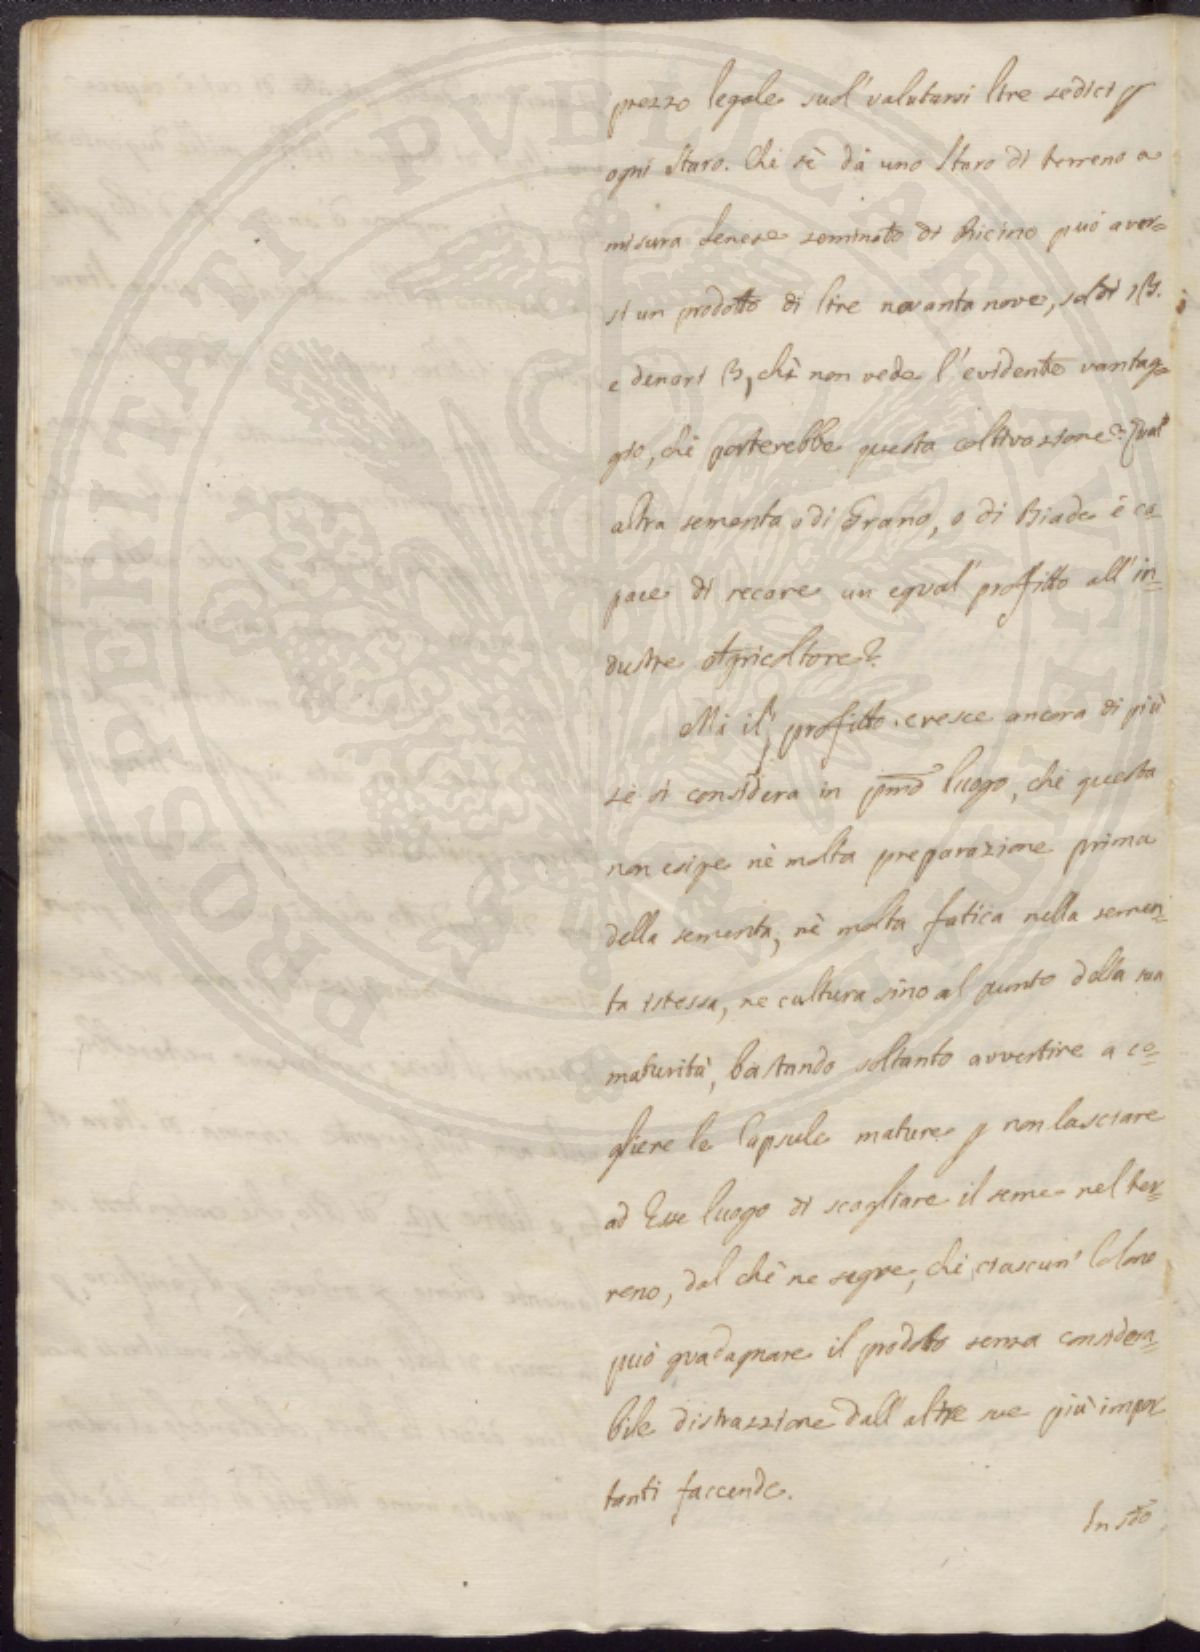 prezzo legale suol' valutarsi lire sedici p
ogni Staro. Che sè dà uno Staro di terreno a
misura Senese seminato di Ricino può aver=
si un prodotto di lire novanta nove, soldi 13.
e denari 3, chi non vede l'evidente vantag=
gio, chè porterebbe questa coltivazione? Qual'
altra sementa o di Grano, o di Biade è ca=
pace di recare un egual' proffitto all'in=
dustre Agricoltore?
Mà il' proffitto cresce ancora di più
sè si considera in pmo luogo, chè questa
non esige nè molta preparazione prima
della sementa, nè molta fatica nella semen=
ta istessa, ne cultura sino al punto della sua
maturità, bastando soltanto avvertire a co=
gliere le Capsule mature p non lasciare
ad Esse luogo di scagliare il seme nel ter=
reno, dal chè ne segue, chè ciascun' Colono
può guadagnare il prodotto senza considera=
bile distrazzione dall'altre sue più impor
tanti faccende.
In sdo
PROSPERITATI PUBLICAE AUGENDAE